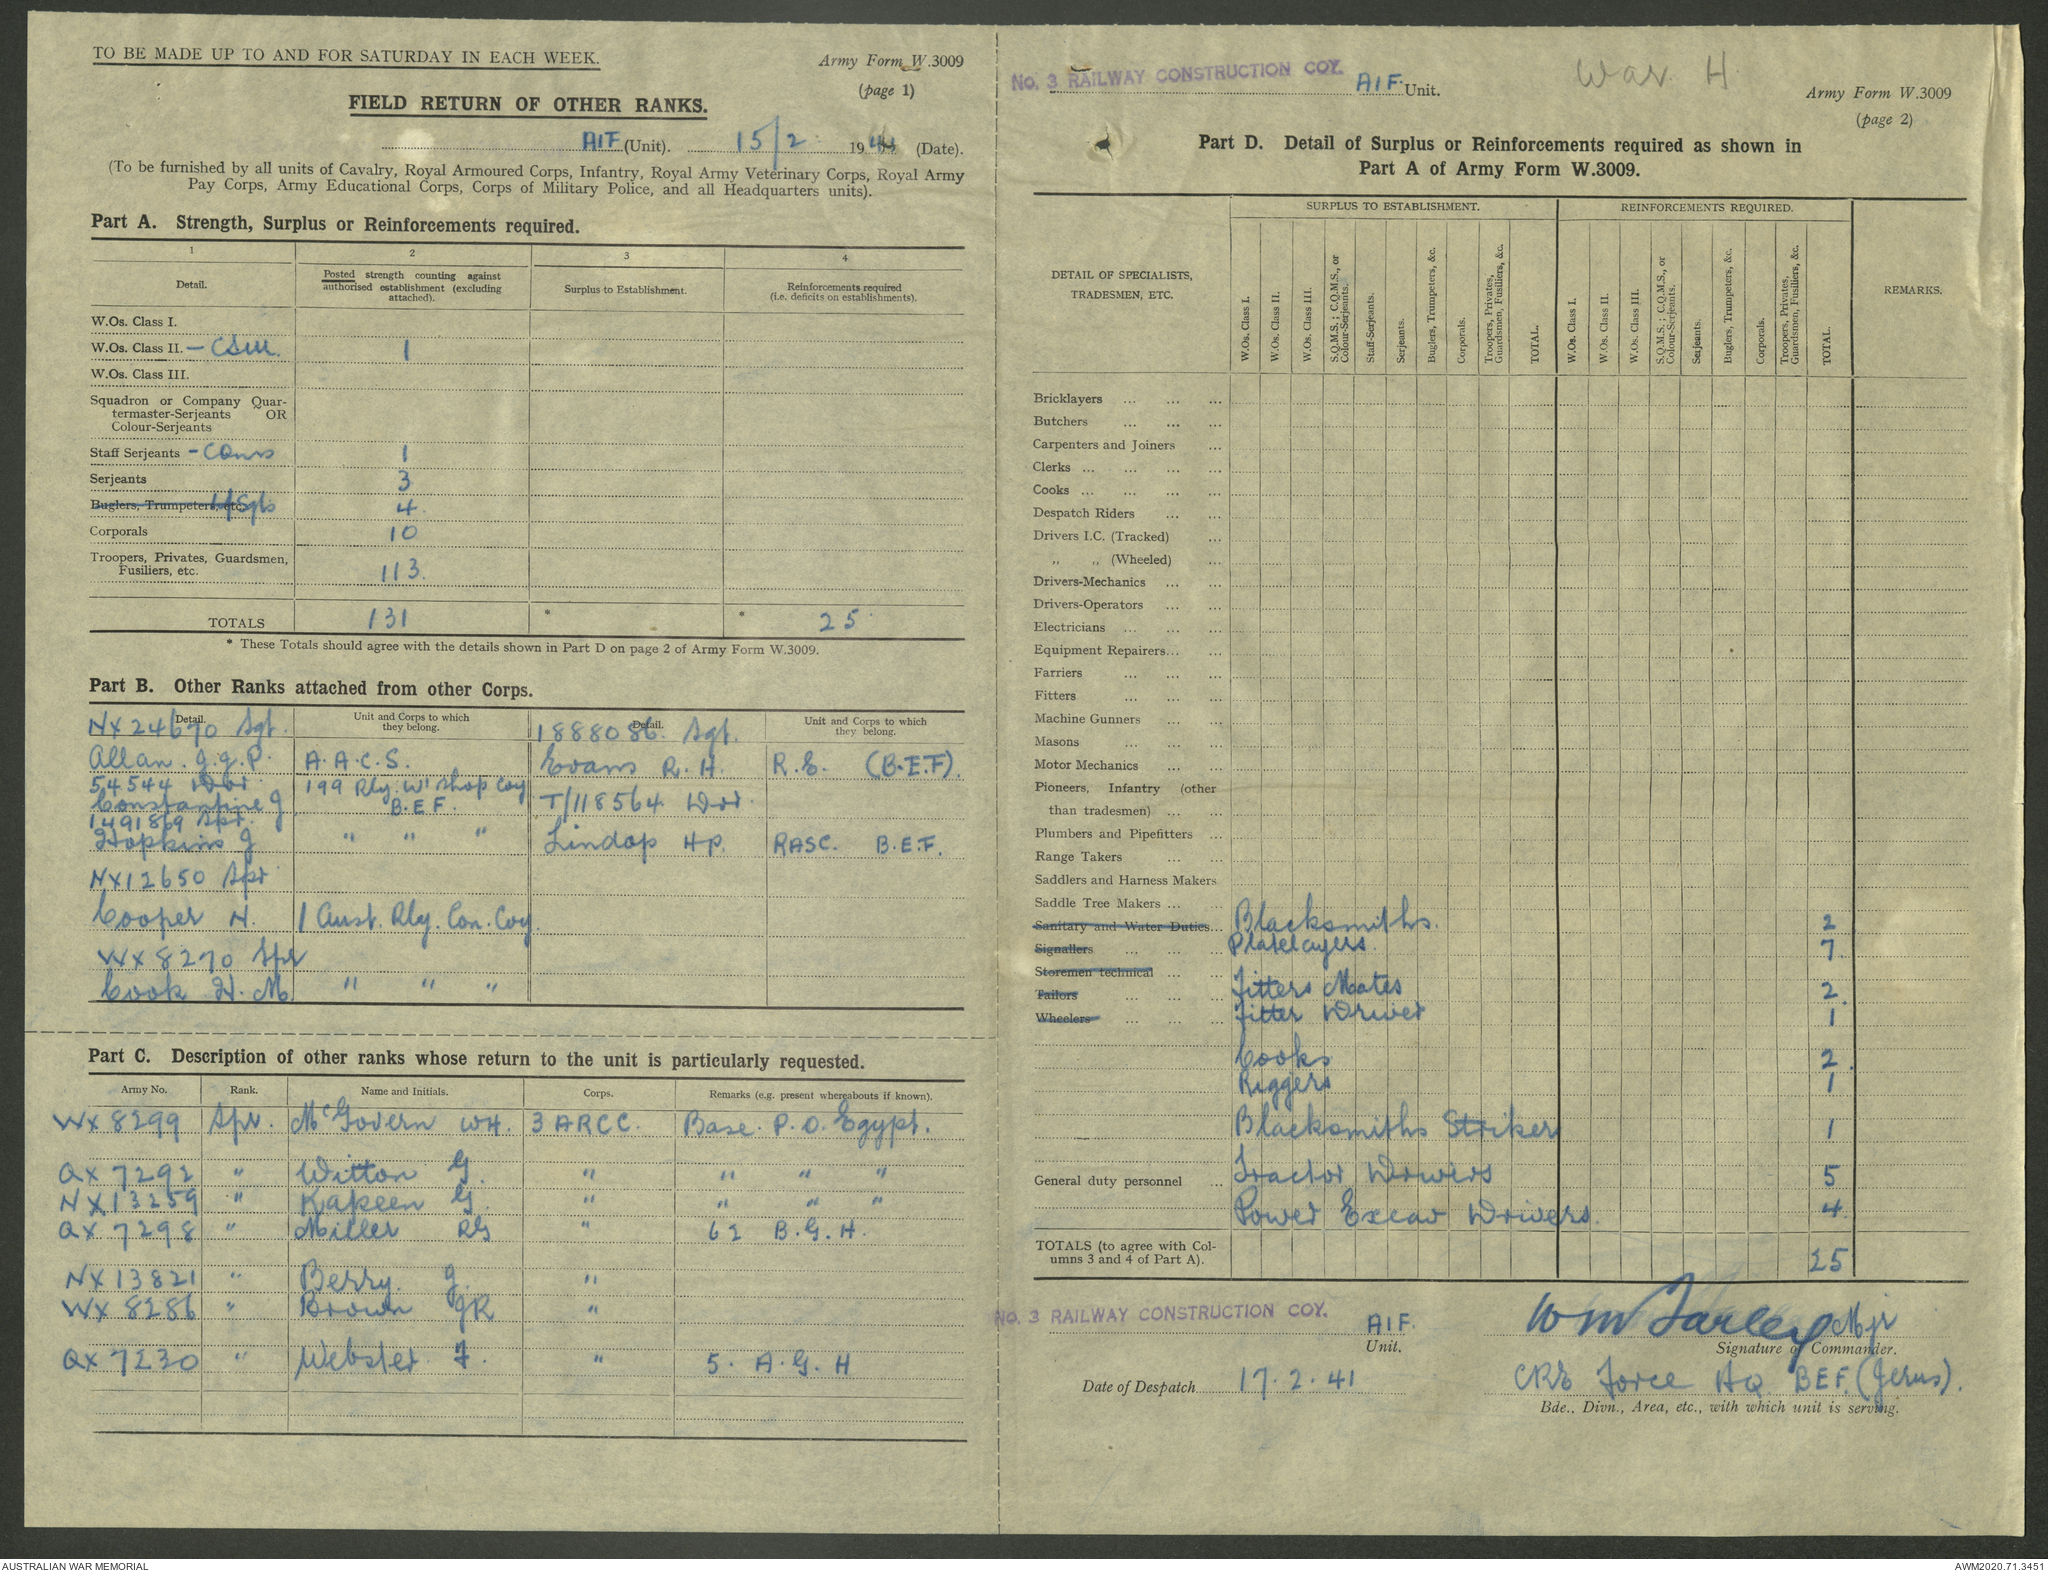 TO BE MADE UP TO AND FOR SATURDAY IN EACH WEEK.
Army Form W.3009
(page 1)
FIELD RETURN OF OTHER RANKS.
AIF (Unit). 15/2 1941 (Date).
(To be furnished by all units of Cavalry, Royal Armoured Corps, Infantry, Royal Army Veterinary Corps, Royal Army
Pay Corps, Army Educational Corps, Corps of Military Police, and all Headquarters units).
Part A. Strength, Surplus or Reinforcements required.
1 2 3 4
Detail.
Posted strength counting against
authorised establishment (excluding
attached).
Surplus to Establishment.
Reinforcements required
(i.e. deficits on establishments).
W.Os. Class I.
W.Os. Class II. - CSM. 1
W.Os. Class III.
Squadron or Company Quar-
termaster-Serjeants OR
Colour-Serjeants
Staff Serjeants - CQMS 1
Serjeants 3
Buglers, Trumpeters, etc. L/Sgts 4
Corporals 10
Troopers, Privates, Guardsmen,
Fusiliers, etc. 113.
TOTALS 131 * * 25
* These Totals should agree with the details shown in Part D on page 2 of Army Form W.3009.
Part B. Other Ranks attached from other Corps.
Detail.
Unit and Corps to which
they belong.
Detail.
Unit and Corps to which
they belong.
NX24670 Sgt. 1888086. Sgt.
Allan. J.G.P. A.A.C.S. Evans R.H. R.E. (B.E.F).
54544 Dvr. 199 Rly. W'shop Coy
Constantine J B.E.F. T/118564. Dvr.
1491869 Spr.
Hopkins J " " " Lindop HP. RASC. B.E.F.
NX12650 Spr
Cooper H. 1 Aust. Rly. Con. Coy.
WX8270 Spr
Cook H.M. " " "
Part C. Description of other ranks whose return to the unit is particularly requested.
Army No. Rank. Name and Initials. Corps. Remarks (e.g. present whereabouts if known).
WX8299 Spr. McGovern WH. 3 ARCC. Base. P.O. Egypt.
QX7292 " Witton G. " " " "
NX13259 " Kapeen G. " " " "
QX7298 " Miller RG " 62 B.G.H.
NX13821 " Berry. J. "
WX8286 " Brown JR "
QX7230 " Webster F. " 5. A.G.H
No. 3 RAILWAY CONSTRUCTION COY. AIF. Unit.
War H
Army Form W.3009
(page 2)
Part D. Detail of Surplus or Reinforcements required as shown in
Part A of Army Form W.3009.
DETAIL OF SPECIALISTS,
TRADESMEN, ETC.
SURPLUS TO ESTABLISHMENT.
W.Os. Class I.
W.Os. Class II.
W.Os. Class III.
S.Q.M.S.; C.Q.M.S., or
Colour-Serjeants.
Staff-Serjeants.
Serjeants.
Buglers, Trumpeters, &c.
Corporals.
Troopers, Privates,
Guardsmen, Fusiliers, &c.
TOTAL.
REINFORCEMENTS REQUIRED.
W.Os. Class I.
W.Os. Class II.
W.Os. Class III.
S.Q.M.S.; C.Q.M.S., or
Colour-Serjeants.
Serjeants.
Buglers, Trumpeters, &c.
Corporals.
Troopers, Privates,
Guardsmen, Fusiliers, &c.
TOTAL.
REMARKS.
Bricklayers ... ... ...
Butchers ... ... ...
Carpenters and Joiners ...
Clerks ... ... ... ...
Cooks ... ... ... ...
Despatch Riders ... ...
Drivers I.C. (Tracked) ...
,, ,, (Wheeled) ...
Drivers-Mechanics ... ...
Drivers-Operators ... ...
Electricians ... ... ...
Equipment Repairers... ...
Farriers ... ... ...
Fitters ... ... ...
Machine Gunners ... ...
Masons ... ... ...
Motor Mechanics ... ...
Pioneers, Infantry (other
than tradesmen) ... ...
Plumbers and Pipefitters ...
Range Takers ... ...
Saddlers and Harness Makers
Saddle Tree Makers ... ...
Sanitary and Water Duties... Blacksmiths. 2
Signallers ... ... ... Platelayers. 7
Storemen technical ... ... Fitters Mates 2
Tailors ... ... ... Fitter Driver 1
Wheelers ... ... ...
Cooks 2
Riggers 1
Blacksmiths Striker 1
General duty personnel ... Tractor Drivers 5
Power Excav Drivers. 4
TOTALS (to agree with Col-
umns 3 and 4 of Part A). 25
No. 3 RAILWAY CONSTRUCTION COY. AIF.
Unit.
WM Farley Mjr
Signature of Commander.
Date of Despatch 17.2.41
CRE Force HQ BEF. (Jerus).
Bde., Divn., Area, etc., with which unit is serving.
AUSTRALIAN WAR MEMORIAL
AWM2020.71.3451